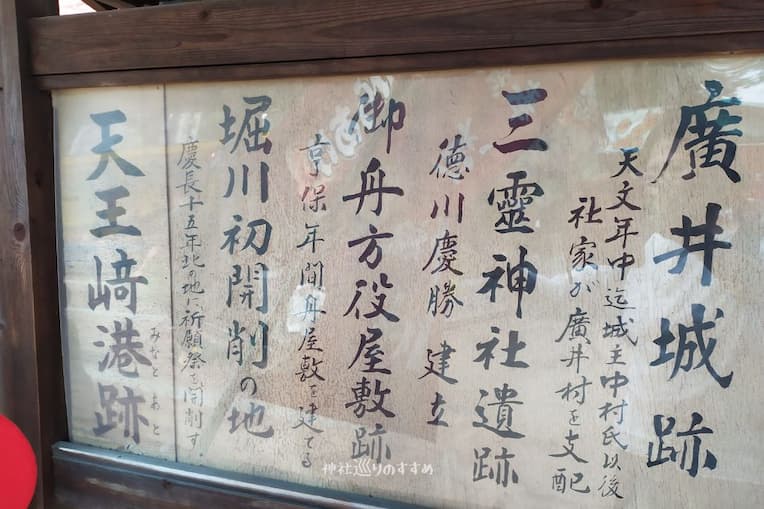 廣井城跡
天文年中迄城主中村氏以後
社家が廣井村を支配
三靈神社遺跡
徳川慶勝 建立
御舟方役屋敷跡
亨保年間舟屋敷を建てる
堀川初開削の地
慶長十五年此の地に祈願祭を開削す.
天王﨑港跡
みなと あと
神社巡りのすすめ